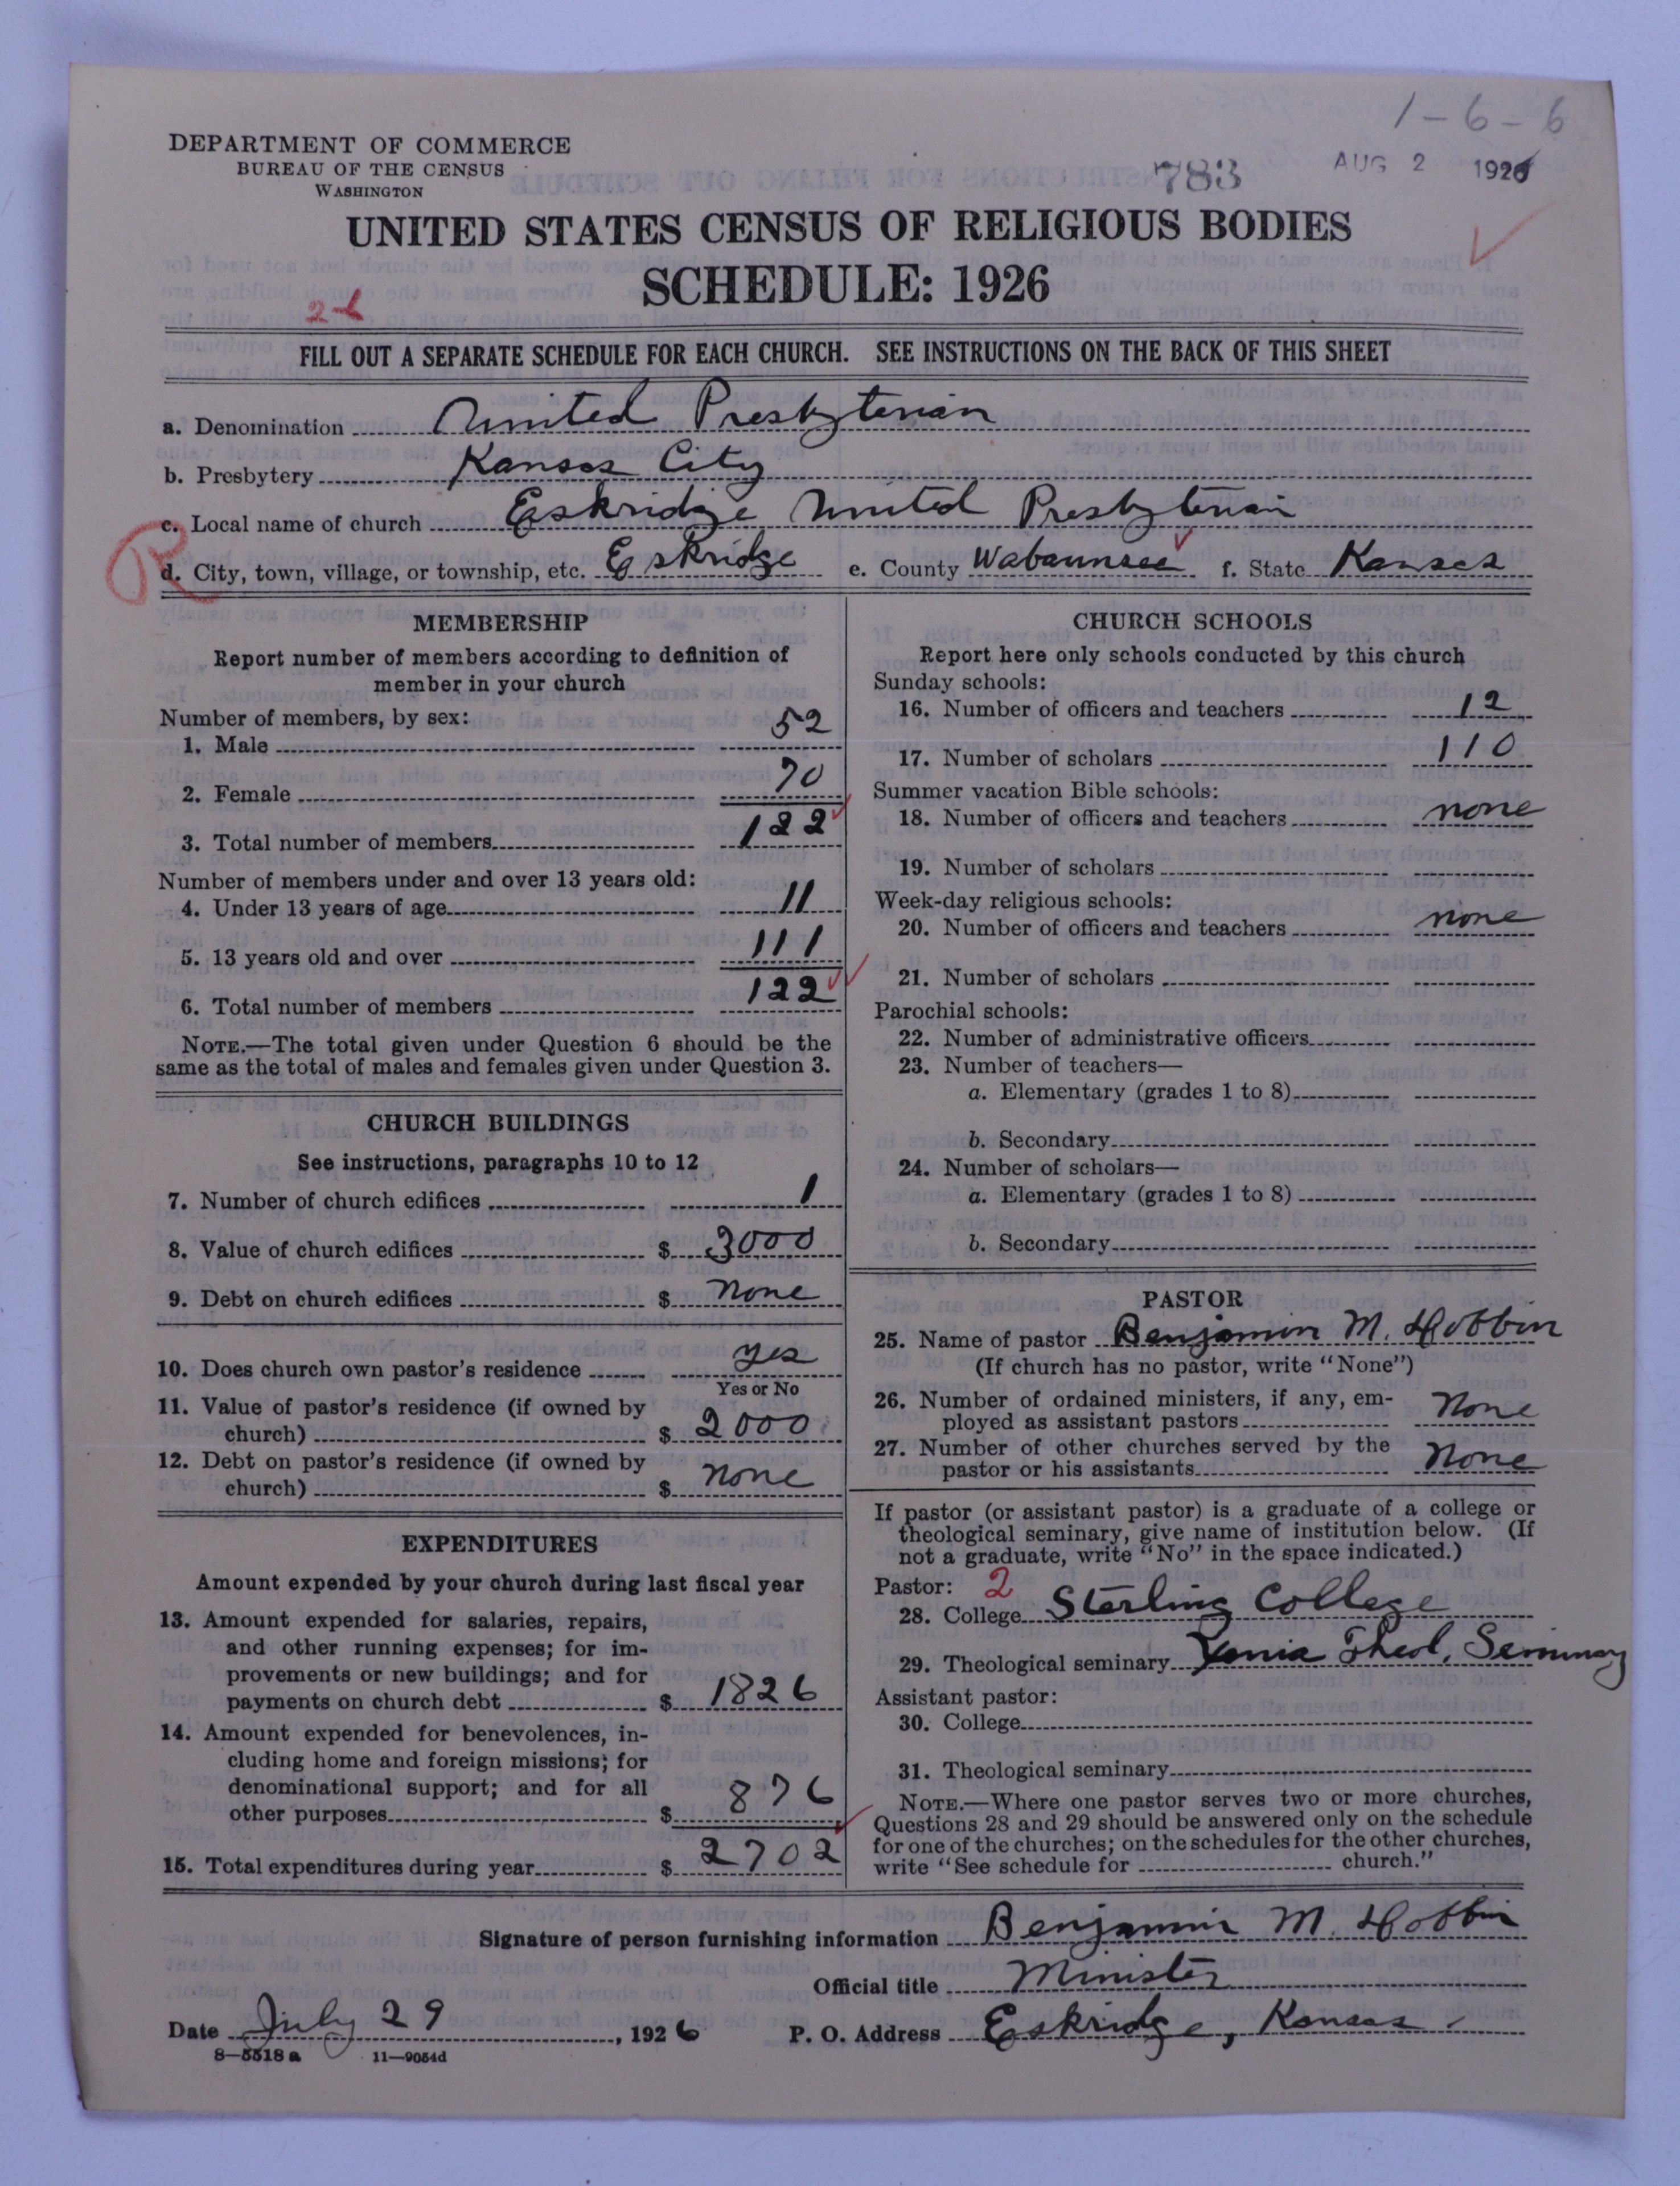 1-6-6
DEPARTMENT OF COMMERCE
BUREAU OF THE CENSUS
WASHINGTON
783
AUG 2 1926
UNITED STATES CENSUS OF RELIGIOUS BODIES
SCHEDULE: 1926
FILL OUT A SEPARATE SCHEDULE FOR EACH CHURCH. SEE INSTRUCTIONS ON THE BACK OF THIS SHEET
a. Denomination United Presbyterian
b. Presbytery Kansas City
c. Local name of church Eskridge United Presbyterian
R
d. City, town, village, or township, etc. Eskridge e. County Wabaunsee f. State Kansas
MEMBERSHIP
Report number of members according to definition of
member in your church
Number of members, by sex:
1. Male 52
2. Female 70
3. Total number of members 122
Number of members under and over 13 years old:
4. Under 13 years of age 11
5. 13 years old and over 111
6. Total number of members 122
NOTE.—The total given under Question 6 should be the
same as the total of males and females given under Question 3.
CHURCH BUILDINGS
See instructions, paragraphs 10 to 12
7. Number of church edifices 1
8. Value of church edifices $ 3000
9. Debt on church edifices $ none
10. Does church own pastor's residence yes
Yes or No
11. Value of pastor's residence (if owned by
church) $ 2000
12. Debt on pastor's residence (if owned by
church) $ none
EXPENDITURES
Amount expended by your church during last fiscal year
13. Amount expended for salaries, repairs,
and other running expenses; for im-
provements or new buildings; and for
payments on church debt $ 1826
14. Amount expended for benevolences, in-
cluding home and foreign missions; for
denominational support; and for all
other purposes $ 876
15. Total expenditures during year $ 2702
CHURCH SCHOOLS
Report here only schools conducted by this church
Sunday schools:
16. Number of officers and teachers 12
17. Number of scholars 110
Summer vacation Bible schools:
18. Number of officers and teachers none
19. Number of scholars
Week-day religious schools:
20. Number of officers and teachers none
21. Number of scholars
Parochial schools:
22. Number of administrative officers
23. Number of teachers—
a. Elementary (grades 1 to 8)
b. Secondary
24. Number of scholars—
a. Elementary (grades 1 to 8)
b. Secondary
PASTOR
25. Name of pastor Benjamin M. Hobbin
(If church has no pastor, write "None")
26. Number of ordained ministers, if any, em-
ployed as assistant pastors None
27. Number of other churches served by the
pastor or his assistants None
If pastor (or assistant pastor) is a graduate of a college or
theological seminary, give name of institution below. (If
not a graduate, write "No" in the space indicated.)
Pastor: 2
28. College Sterling College
29. Theological seminary Xenia Theol. Seminary
Assistant pastor:
30. College
31. Theological seminary
NOTE.—Where one pastor serves two or more churches,
Questions 28 and 29 should be answered only on the schedule
for one of the churches; on the schedules for the other churches,
write "See schedule for church."
Signature of person furnishing information Benjamin M. Hobbin
Official title Minister
Date July 29, 1926 P. O. Address Eskridge, Kansas.
8—5518 a 11—9054d